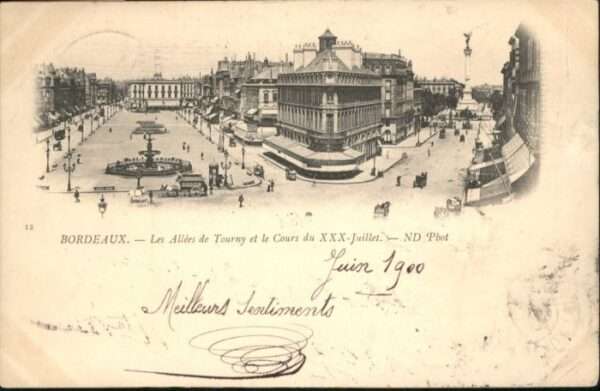 12
BORDEAUX. — Les Allées de Tourny et le Cours du XXX-Juillet. — ND Phot
Juin 1900
Meilleurs Sentiments